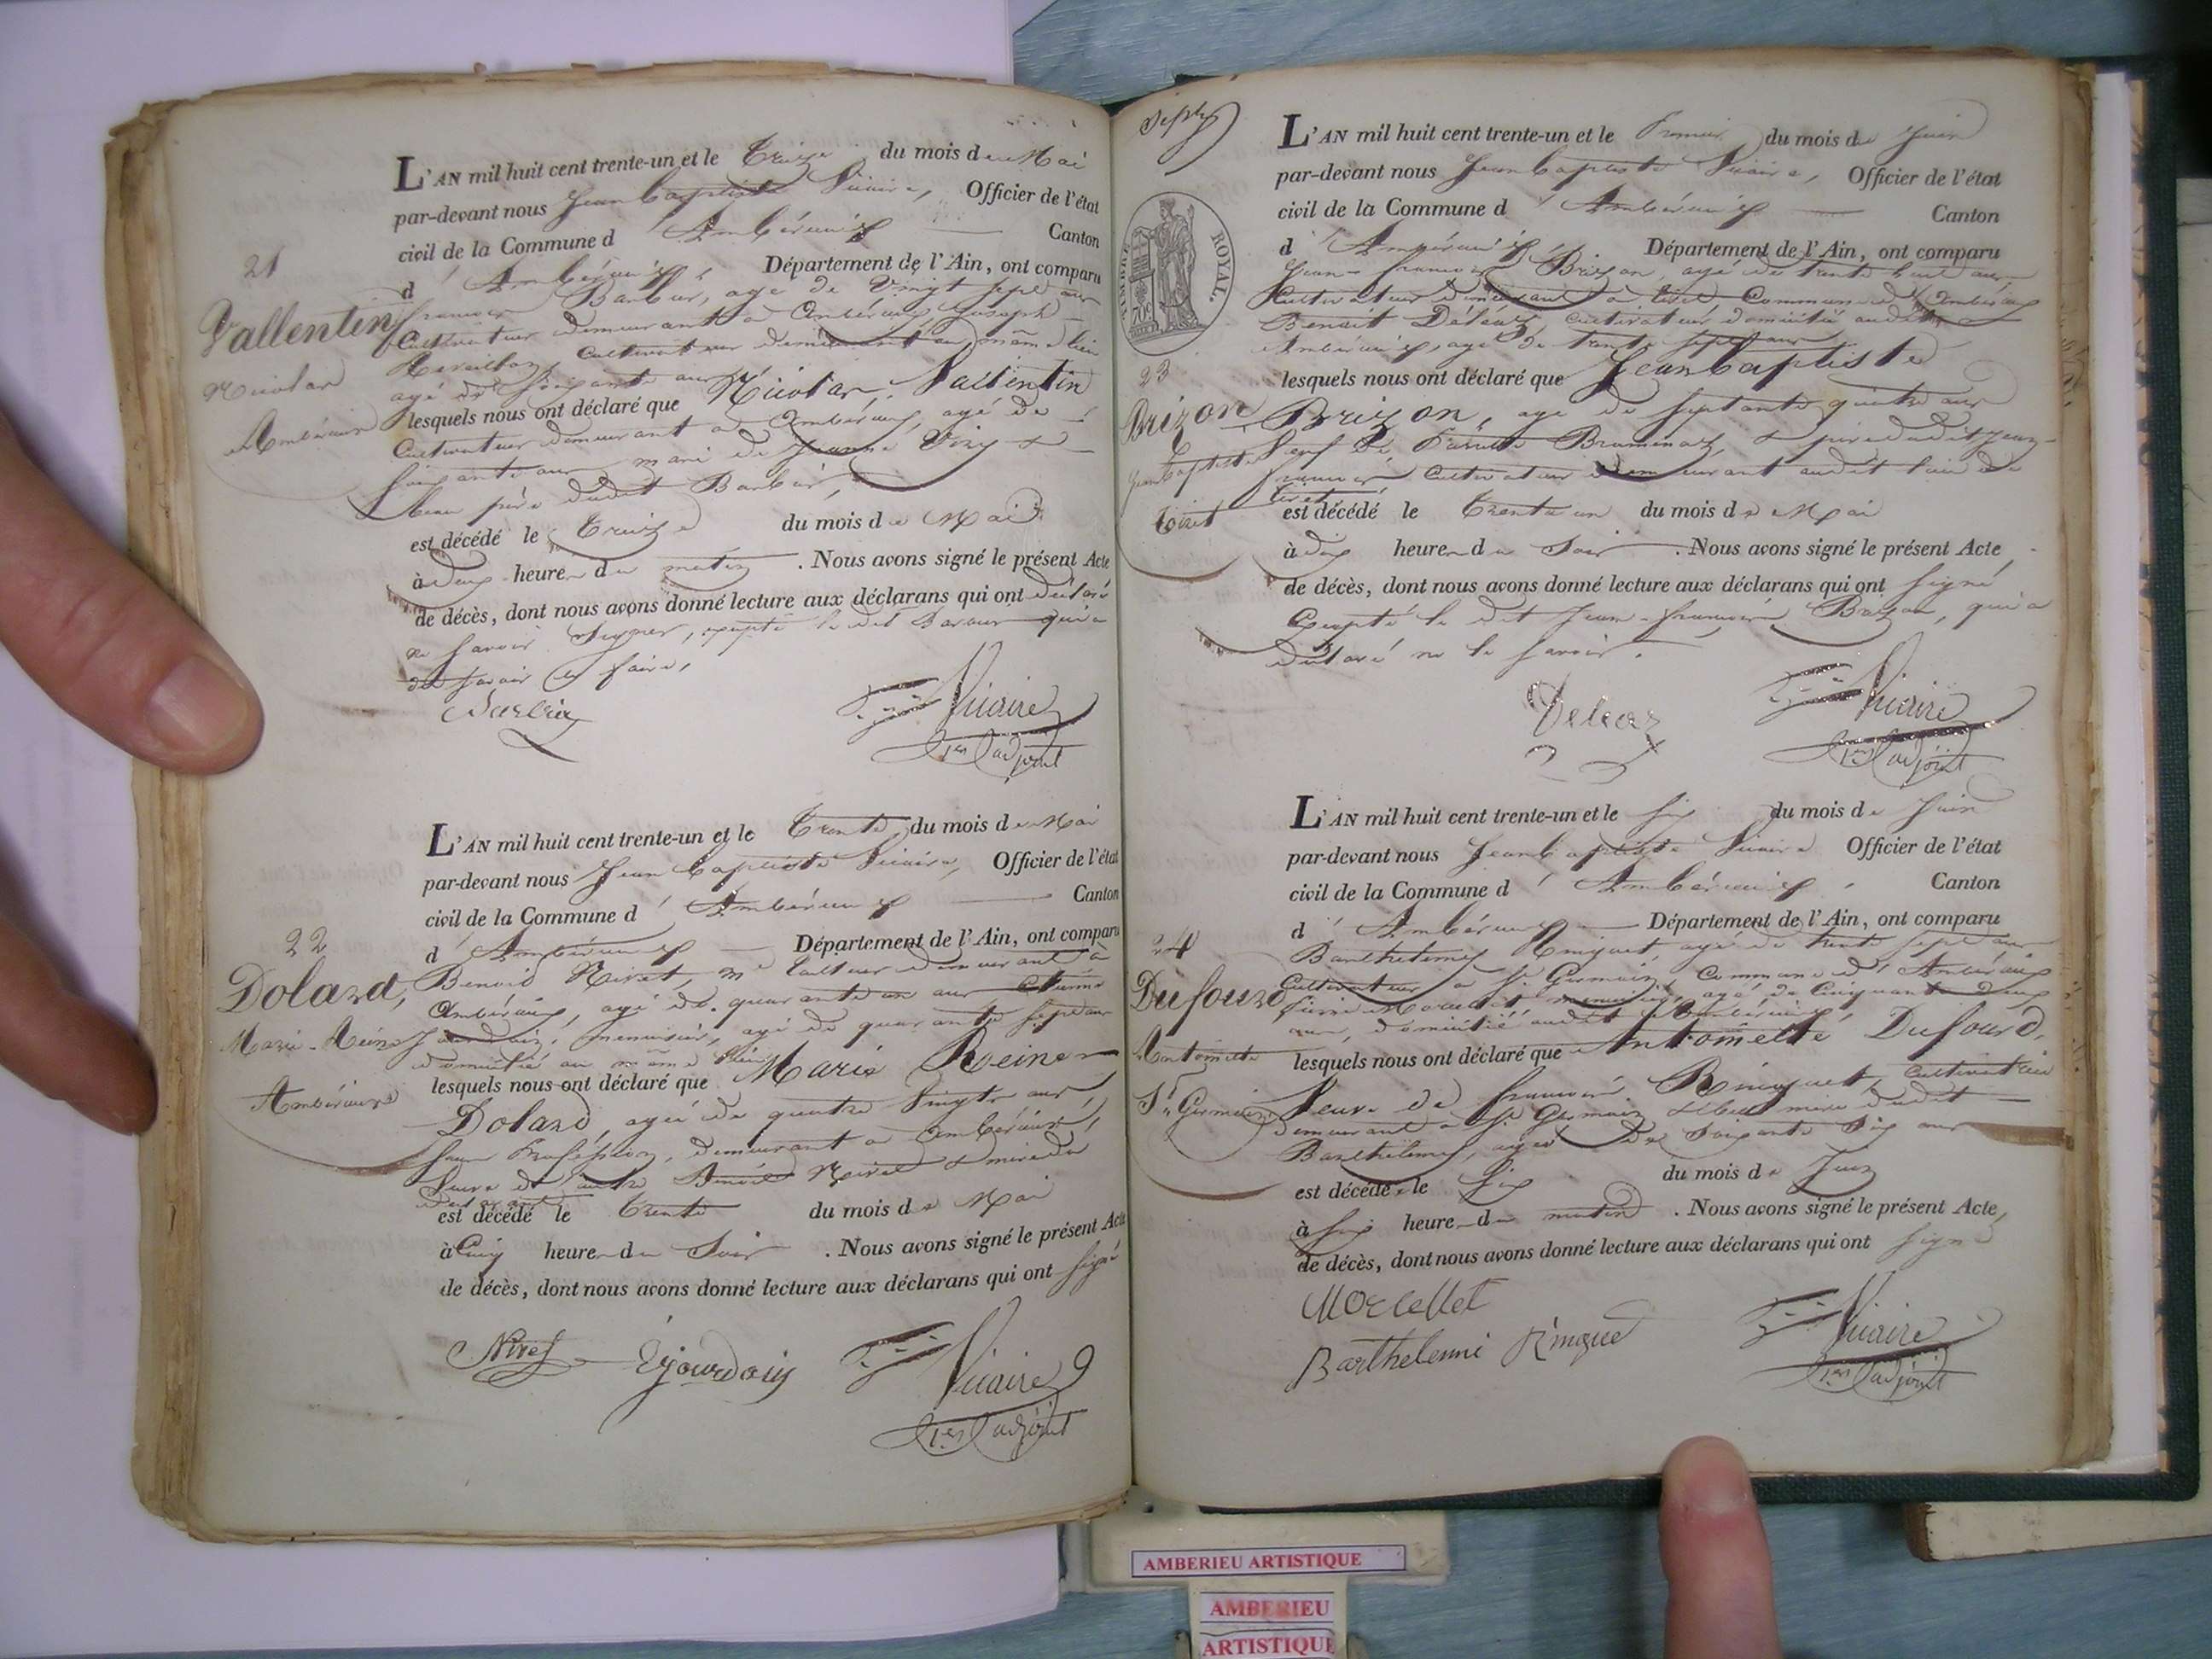 21
Vallentin
Nicolas
Ambérieux
L'AN mil huit cent trente-un et le Treize du mois de Mai
par-devant nous Jean Baptiste Vicaire, Officier de l'état
civil de la Commune d'Ambérieux Canton
d'Ambérieux, Département de l'Ain, ont comparu
françois Barbier, agé de vingt sept ans
Cultivateur demeurant a Ambérieux Joseph
Cultivateur demeurant au même lieu
agé de soixante ans
lesquels nous ont déclaré que Nicolas, Vallentin
Cultivateur demeurant a Ambérieux, agé de
soixante ans mari de Jeanne &
beau père dudit Barbier,
est décédé le Treize du mois de Mai
à deux heure du matin. Nous avons signé le présent Acte
de décès, dont nous avons donné lecture aux déclarans qui ont déclaré
ne savoir signer, excepté le dit qui a
dit savoir le faire,
Vicaire
1er adjoint
22
Dolard,
Marie-Reine
Ambérieux
L'AN mil huit cent trente-un et le Trente du mois de Mai
par-devant nous Jean Baptiste Vicaire, Officier de l'état
civil de la Commune d'Ambérieux Canton
d'Ambérieux Département de l'Ain, ont comparu
Benoit demeurant à
Ambérieux, agé de quarante un ans
menuisier, agé de quarante sept ans
domicilié au même lieu
lesquels nous ont déclaré que Marie Reine
Dolard, agée de quatre vingts ans,
sans Profession, demeurant a Ambérieux,
Veuve de autre Benoit & mère du
déclarant
est décédé le Trente du mois de Mai
à Cinq heure du Soir. Nous avons signé le présent Acte
de décès, dont nous avons donné lecture aux déclarans qui ont signé
Ejourdain
Vicaire
1er adjoint
TIMBRE ROYAL.
70c
23
Brizon
Jean Baptiste
Tiret
L'AN mil huit cent trente-un et le Premier du mois de Juin
par-devant nous Jean Baptiste Vicaire, Officier de l'état
civil de la Commune d'Ambérieux Canton
d'Ambérieux Département de l'Ain, ont comparu
Jean-françois Brizon, agé de trente huit ans
Cultivateur demeurant a tiret Commune d'Ambérieux
Benoit cultivateur domicilié audit
Ambérieux, agé de trente sept ans
lesquels nous ont déclaré que Jean Baptiste
Brizon, agé de septante quatre ans
Veuf de & père dudit Jean-
françois Cultivateur demeurant audit lieu de
tiret
est décédé le trente un du mois de Mai
à dix heure du Soir. Nous avons signé le présent Acte,
de décès, dont nous avons donné lecture aux déclarans qui ont signé
Excepté le dit Jean-françois Brizon, qui a
déclaré ne le savoir.
Vicaire
1er adjoint
24
Dufourd
Antoinette
St. Germain
L'AN mil huit cent trente-un et le six du mois de Juin
par-devant nous Jean Baptiste Vicaire Officier de l'état
civil de la Commune d'Ambérieux, Canton
d'Ambérieux Département de l'Ain, ont comparu
Barthelemy Ringuet, agé de trente sept ans
Cultivateur a St Germain Commune d'Ambérieux
agé de Cinquante deux
ans, domicilié audit Ambérieux,
lesquels nous ont déclaré que Antoinette Dufourd,
Veuve de françois Ringuet, cultivatrice
demeurant a St Germain mère dudit
Barthelemy, agée de soixante six ans
est décédé le six du mois de Juin
à six heure du matin. Nous avons signé le présent Acte,
de décès, dont nous avons donné lecture aux déclarans qui ont signé
Morcellet
Barthelemi Ringue
Vicaire
1er adjoint
AMBERIEU ARTISTIQUE
AMBERIEU
ARTISTIQUE